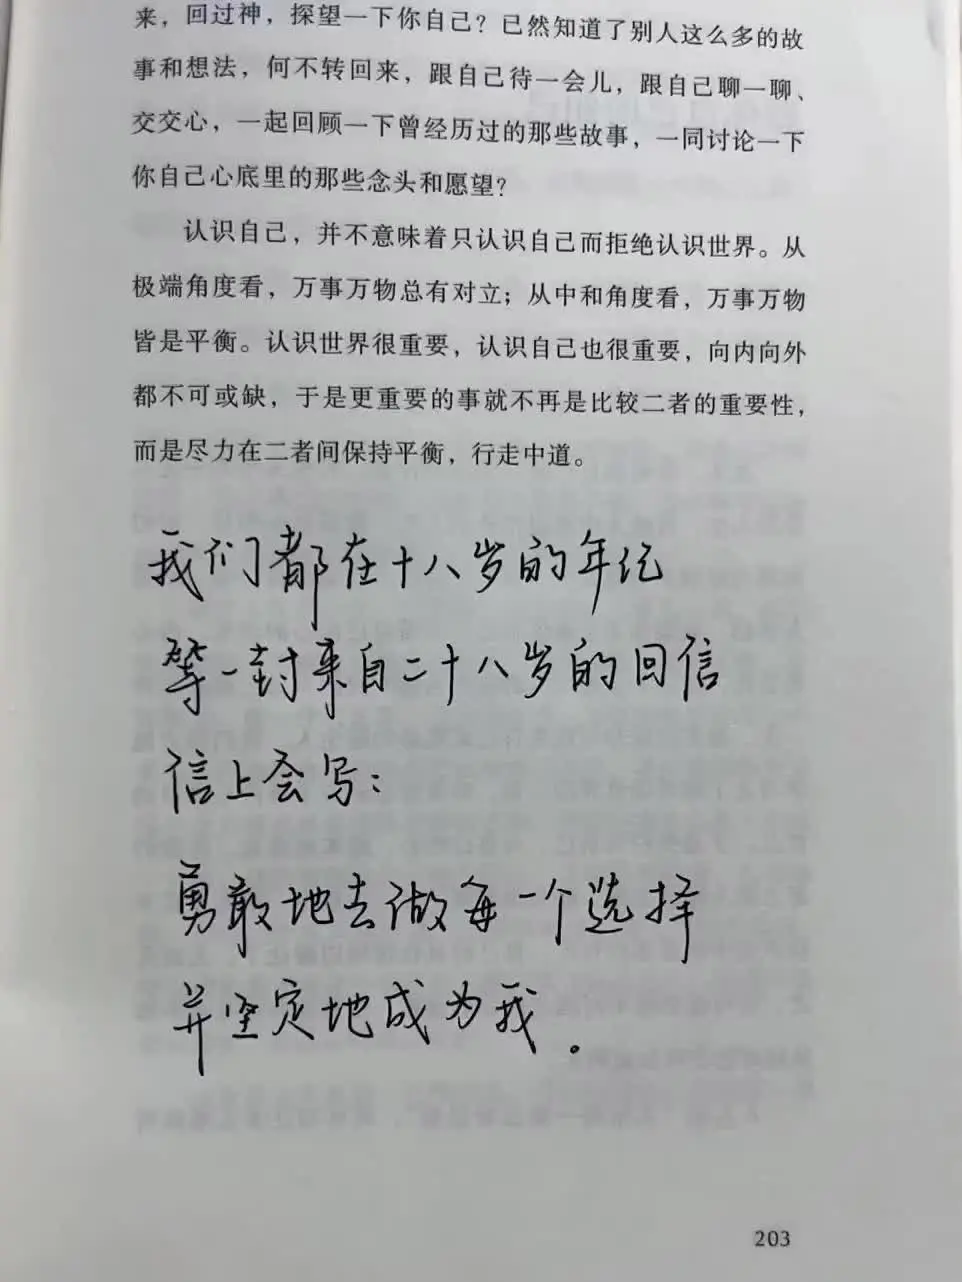 来，回过神，探望一下你自己？已然知道了别人这么多的故
事和想法，何不转回来，跟自己待一会儿，跟自己聊一聊、
交交心，一起回顾一下曾经历过的那些故事，一同讨论一下
你自己心底里的那些念头和愿望？
认识自己，并不意味着只认识自己而拒绝认识世界。从
极端角度看，万事万物总有对立；从中和角度看，万事万物
皆是平衡。认识世界很重要，认识自己也很重要，向内向外
都不可或缺，于是更重要的事就不再是比较二者的重要性，
而是尽力在二者间保持平衡，行走中道。
我们都在十八岁的年纪
等一封来自二十八岁的回信
信上会写：
勇敢地去做每一个选择
并坚定地成为我。
203